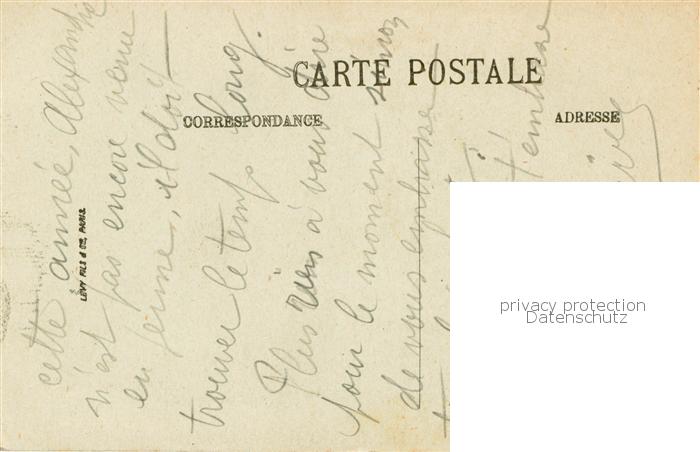 CARTE POSTALE
CORRESPONDANCE
ADRESSE
LÉVY FILS & CIE, PARIS
cette année, Alexandre
n'est pas encore venu
en ferme, il doit
trouver le temps long.
Plus rien à vous dire
pour le moment sinon
de vous embrasse
privacy protection
Datenschutz